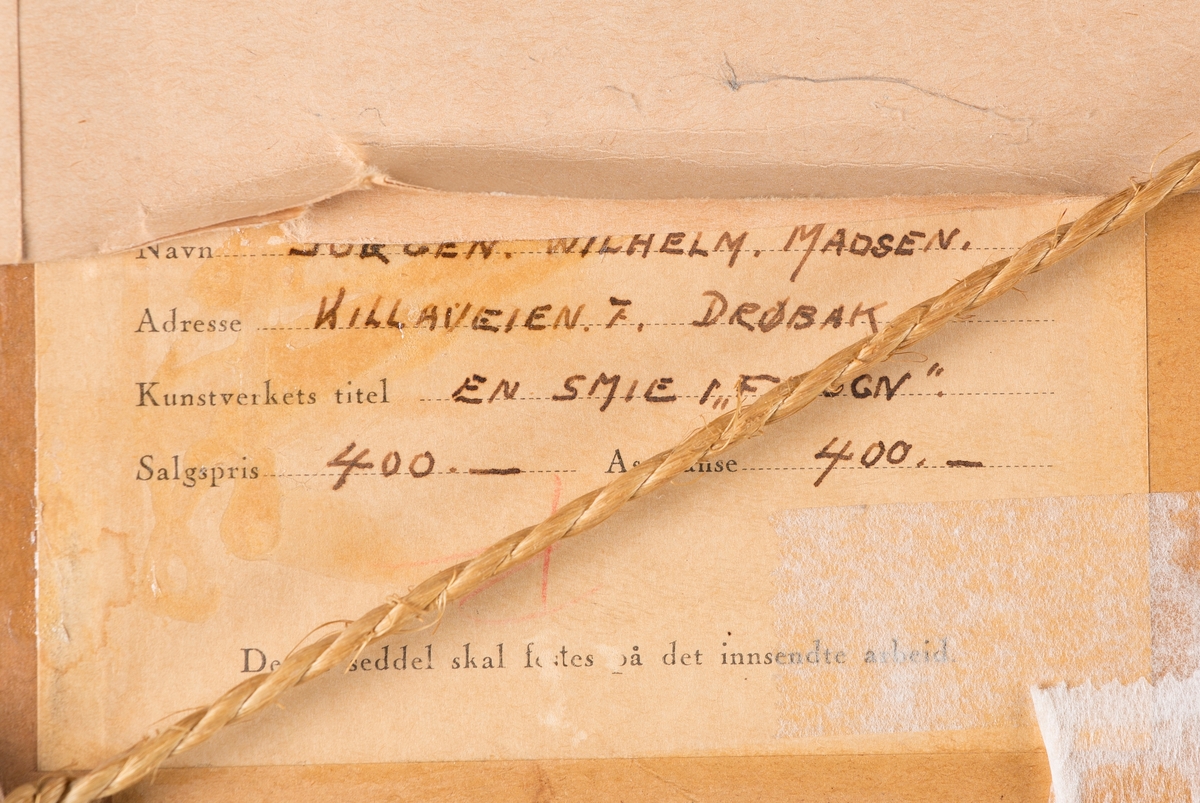 Navn JØRGEN. WILHELM. MADSEN.
Adresse KILLAVEIEN. 7. DRØBAK
Kunstverkets titel EN SMIE I
Salgspris 400.— 400.—
seddel skal festes på det innsendte arbeid.